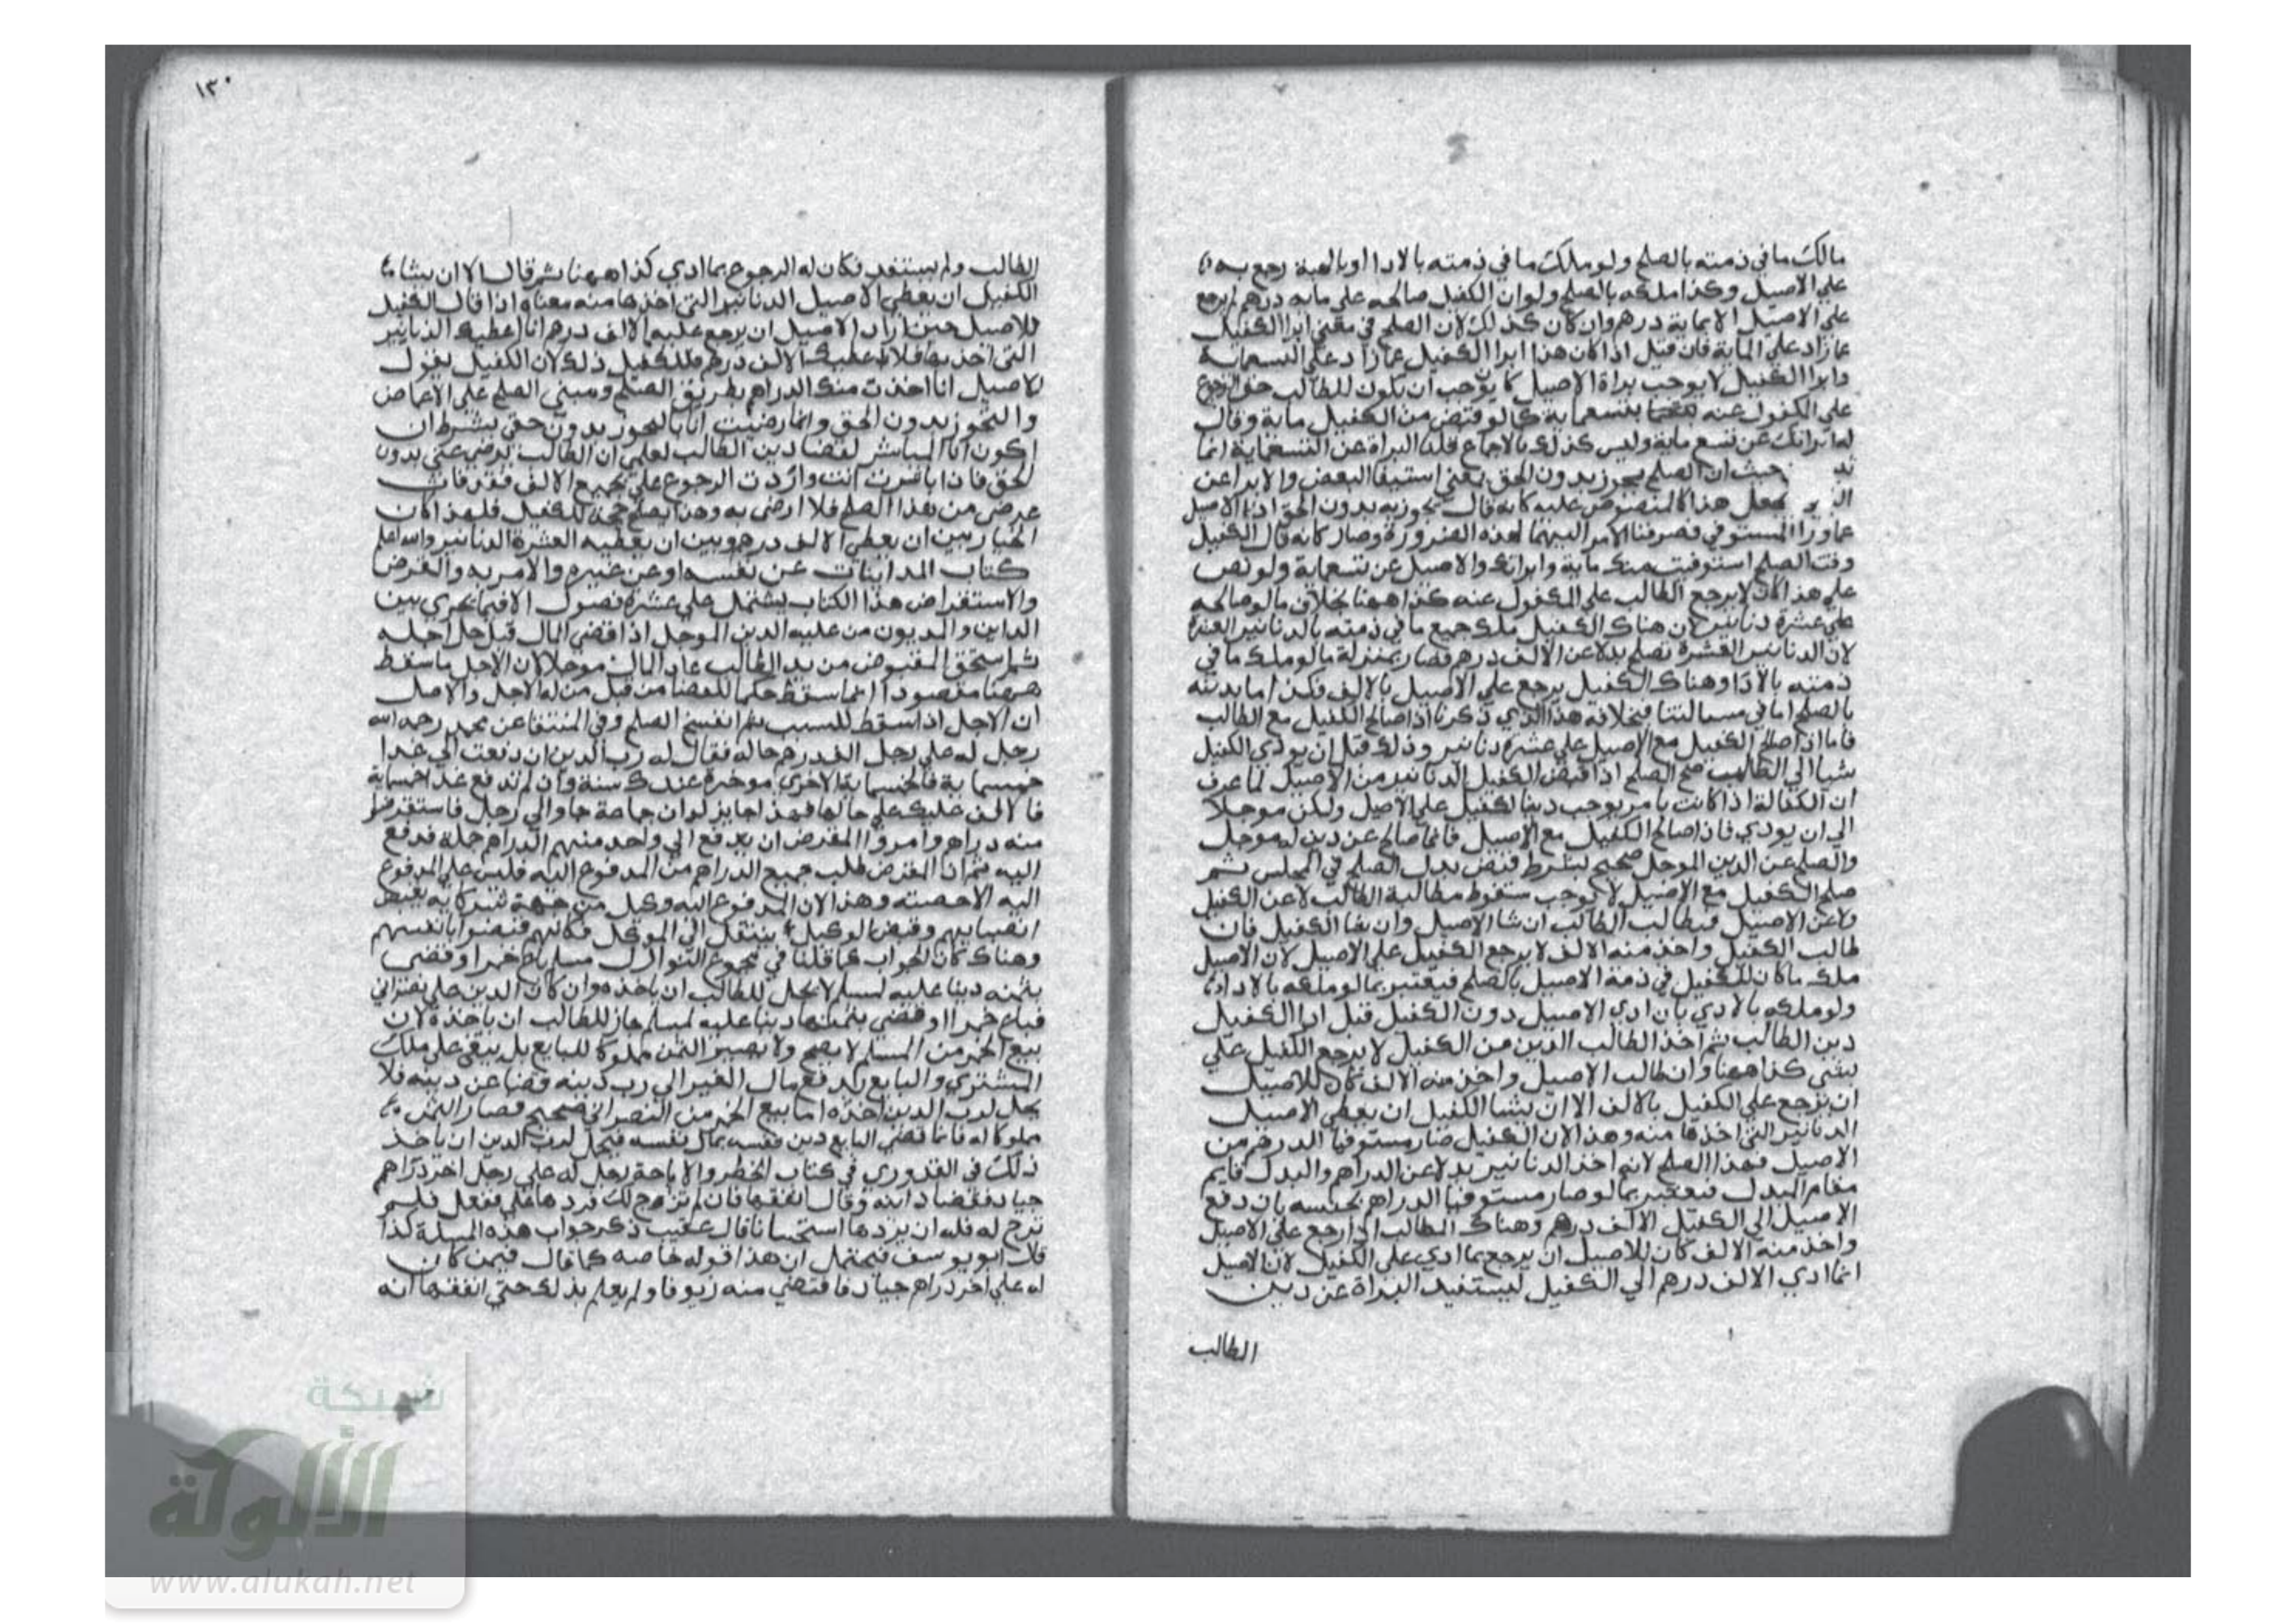 مالك ما في ذمته بالصلح ولو ملك ما في ذمته بالادا او بالهبة رجع به
علي الاصيل وكذا ملكه بالصلح ولو ان الكفيل صالحه علي مايه درهم لم يرجع
علي الاصيل الا بماية درهم وان كان كذلك لان الصلح في معني ابرا الكفيل
عما زاد علي الماية فان قيل اذا كان هذا ابرا الكفيل عما زاد علي التسعماية
وابرا الكفيل لا يوجب براة الاصيل كما يوجب ان يكون للطالب حق الرجوع
علي المكفول عنه بتسعماية كما لو قبض من الكفيل ماية وقال
له ابراتك عن تسع ماية وليس كذلك بالاجماع قلنا البراة عن التسعماية انما
حيث ان الصلح يجوز بدون الحق بمعني استيفا البعض والابرا عن
يجعل هذا كالمنصوص عليه كانه قال تجوز به بدون الحق اذا الاصيل
عاورا المستوفي فصرفنا الامر اليهما لهذه الضرورة وصار كانه قال الكفيل
وقت الصلح استوفيت منك ماية وابراتك والاصيل عن تسعماية ولو نص
علي هذا كان لا يرجع الطالب علي المكفول عنه كذا ههنا بخلاف ما لو صالحه
علي عشرة دنانير لان هناك الكفيل ملك جميع ما في ذمته بالدنانير العشرة
لان الدنانير العشرة تصلح بدلا عن الالف درهم فصار بمنزلة ما لو ملك ما في
ذمته بالادا وهناك الكفيل يرجع علي الاصيل بالالف فكذا ما يدينه
بالصلح اما في مسالتنا فبخلافه هذا الذي ذكرنا اذا صالح الكفيل مع الطالب
فاما اذا صالح الكفيل مع الاصيل علي عشرة دنانير وذلك قبل ان يودي الكفيل
شيا الي الطالب صح الصلح اذا قبض الكفيل الدنانير من الاصيل لما عرف
ان الكفالة اذا كانت بامر يوجب دينا للكفيل علي الاصيل ولكن موجلا
الي ان يودي فاذا صالح الكفيل مع الاصيل فانما صالح عن دين له موجل
والصلح عن الدين الموجل صحيح بشرط قبض بدل الصلح في المجلس ثم
صلح الكفيل مع الاصيل لا يوجب سقوط مطالبة الطالب لا عن الكفيل
ولا عن الاصيل فيطالب الطالب ان شا الاصيل وان شا الكفيل فان
طالب الكفيل واخذ منه الالف لا يرجع الكفيل علي الاصيل لان الاصيل
ملك ما كان للكفيل في ذمة الاصيل بالصلح فيعتبر بما لو ملكه بالادا
ولو ملكه بالادي بان ادي الاصيل دون الكفيل قبل ادا الكفيل
دين الطالب ثم اخذ الطالب الدين من الكفيل لا يرجع الكفيل علي
بشي كذا ههنا وان طالب الاصيل واخذ منه الالف كان للاصيل
ان يرجع علي الكفيل بالالف الا ان يشا الكفيل ان يعطي الاصيل
الدنانير التي اخذها منه وهذا لان الكفيل صار مستوفيا الدرهم من
الاصيل بهذا الصلح لانه اخذ الدنانير بدلا عن الدراهم والبدل قايم
مقام المبدل فيعتبر بما لو صار مستوفيا الدراهم بجنسه بان دفع
الاصيل الي الكفيل الالف درهم وهناك الطالب اذا رجع علي الاصيل
واخذ منه الالف كان للاصيل ان يرجع بما ادي علي الكفيل لان الاصيل
انما ادي الالف درهم الي الكفيل ليستفيد البراة عن دين
الطالب
١٣٠
الطالب ولم يستفد فكان له الرجوع بما ادي كذا ههنا ثم قال الا ان يشا
الكفيل ان يعطي الاصيل الدنانير التي اخذها منه معناه اذا قال الكفيل
للاصيل حين اراد الاصيل ان يرجع عليه الالف درهم انا اعطيك الدنانير
التي اخذتها فلا اعطيك الالف درهم فللكفيل ذلك لان الكفيل يقول
للاصيل انا اخذت منك الدراهم بطريق الصلح ومبني الصلح علي الاغماض
والتجوز بدون الحق وانما رضيت انا بالتجوز بدون حقي بشرط ان
اكون انا المباشر لقضا دين الطالب لعلمي ان الطالب يرضي عني بدون
الحق فاذا باشرت انت واردت الرجوع علي بجميع الالف فقد فات
غرضي من هذا الصلح فلا ارضي به وهذا يصلح حجة للكفيل فلهذا كان
الخيار بين ان يعطي الالف درهم وبين ان يعطيه العشرة الدنانير والله اعلم
كتاب المداينات عن نفسه او عن غيره والامر به والقرض
والاستقراض هذا الكتاب يشتمل علي عشرة فصول الا فيما يجري بين
الداين والمديون من عليه الدين الموجل اذا قضي المال قبل حل اجله
ثم استحق المقبوض من يد الطالب عاد المال موجلا لان الاجل ما سقط
ههنا مقصودا انما سقط حكما للقضا من قبل من له الاجل والاصل
ان الاجل اذا سقط للسبب ثم انفسخ الصلح وفي المنتقا عن محمد رحمه الله
رجل له علي رجل الف درهم حالة فقال له رب الدين ان دفعت الي غدا
خمسماية فالخمسماية الاخري موخرة عندك سنة وان لم تدفع غدا خمسماية
فالالف عليك علي حالها فهذا جايز لو ان جماعة جاوا الي رجل فاستقرضوا
منه دراهم وامروا المقرض ان يدفع الي واحد منهم الدراهم جملة فدفع
اليه ثم ان المقرض طلب جميع الدراهم من المدفوع اليه فليس علي المدفوع
اليه الا حصته وهذا لان المدفوع اليه وكيل من جهة شركايه بقبض
انصبايهم وقبض الوكيل ينتقل الي الموكل فكانهم قبضوا بانفسهم
وهناك كان الجواب كما قلنا في مجموع النوازل مسلم باع خمرا وقضي
بثمنه دينا عليه لمسلم لا يحل للطالب ان ياخذه وان كان الدين علي نصراني
فباع خمرا وقضي بثمنها دينا عليه لمسلم جاز للطالب ان ياخذه لان
بيع الخمر من المسلم لا يصح ولا يصير الثمن مملوكا للبايع بل يبقي علي ملك
المشتري والبايع يدفع مال الغير الي رب دينه قضا عن دينه فلا
يحل لرب الدين اخذه اما بيع الخمر من النصراني صحيح فصار الثمن
مملوكا له فانما قضي البايع دين نفسه بمال نفسه فيحل لرب الدين ان ياخذ
ذلك في القدوري في كتاب الحظر والاباحة رجل له علي رجل اخر دراهم
جياد فقضاه دابنه وقال انفقها فان لم تروج لك فردها علي ففعل فلم
تروج له فله ان يردها استحسانا قال عقيب ذكر جواب هذه المسلة كذا
قال ابو يوسف فيحتمل ان هذا قوله خاصه كما قال فيمن كان
له علي اخر دراهم جياد فاقتضي منه زيوفا ولم يعلم بذلك حتي انفقها انه
شبكة
الألوكة
www.alukah.net